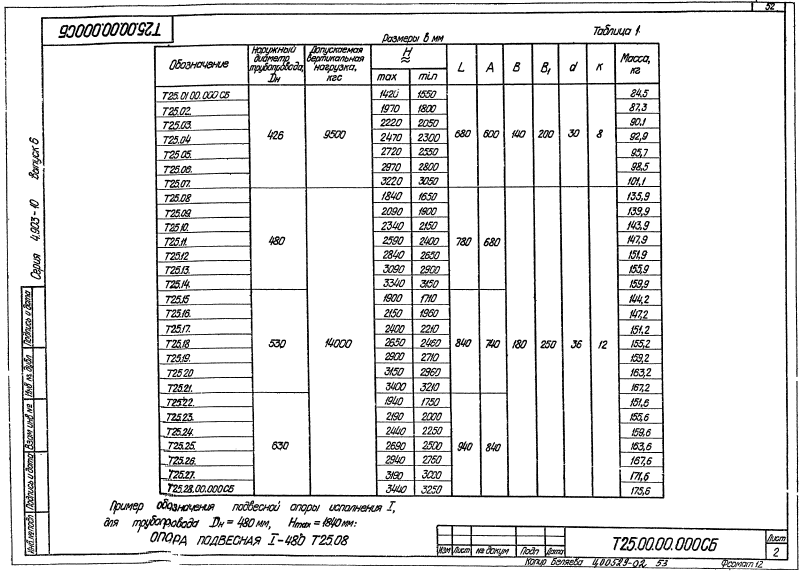 52
Т25.00.00.000СБ
Размеры в мм
Таблица 1
Обозначение | Наружный диаметр трубопровода, Dн | Допускаемая вертикальная нагрузка, кгс | H ≈ max | min | L | A | B | B₁ | d | K | Масса, кг
Т25.01.00.000СБ | 426 | 9500 | 1420 | 1550 | 680 | 600 | 140 | 200 | 30 | 8 | 24,5
Т25.02. | 1970 | 1800 | 87,3
Т25.03. | 2220 | 2050 | 90,1
Т25.04 | 2470 | 2300 | 92,9
Т25.05. | 2720 | 2550 | 95,7
Т25.06. | 2970 | 2800 | 98,5
Т25.07. | 3220 | 3050 | 101,1
Т25.08 | 480 | 14000 | 1840 | 1650 | 780 | 680 | 180 | 250 | 36 | 12 | 135,9
Т25.09. | 2090 | 1900 | 139,9
Т25.10. | 2340 | 2150 | 143,9
Т25.11. | 2590 | 2400 | 147,9
Т25.12 | 2840 | 2650 | 151,9
Т25.13. | 3090 | 2900 | 155,9
Т25.14. | 3340 | 3150 | 159,9
Т25.15 | 530 | 1900 | 1710 | 840 | 740 | 144,2
Т25.16. | 2150 | 1960 | 147,2
Т25.17. | 2400 | 2210 | 151,2
Т25.18 | 2650 | 2460 | 155,2
Т25.19. | 2900 | 2710 | 159,2
Т25.20 | 3150 | 2960 | 163,2
Т25.21. | 3400 | 3210 | 167,2
Т25.22. | 630 | 1940 | 1750 | 940 | 840 | 151,6
Т25.23. | 2190 | 2000 | 155,6
Т25.24. | 2440 | 2250 | 159,6
Т25.25. | 2690 | 2500 | 163,6
Т25.26. | 2940 | 2750 | 167,6
Т25.27. | 3190 | 3000 | 171,6
Т25.28.00.000СБ | 3440 | 3250 | 175,6
Пример обозначения подвесной опоры исполнения I,
для трубопровода Dн = 480 мм, Hmax = 1840 мм:
ОПОРА ПОДВЕСНАЯ I-480 Т25.08
Серия 4.903-10 Выпуск 6
Инв.№подл Подпись и дата Взам инв № Инв № дубл Подпись и дата
Изм Лист № докум Подп Дата
Т25.00.00.000СБ
Лист
2
Копир Беляева 400529-02 53 Формат 12